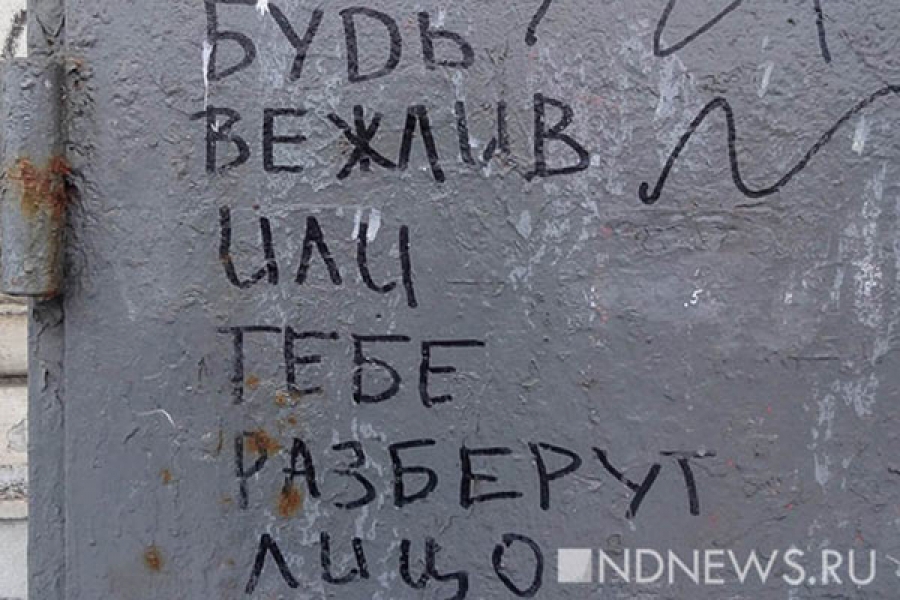 БУДЬ
ВЕЖЛИВ
ИЛИ
ТЕБЕ
РАЗБЕРУТ
ЛИЦО
NDNEWS.RU